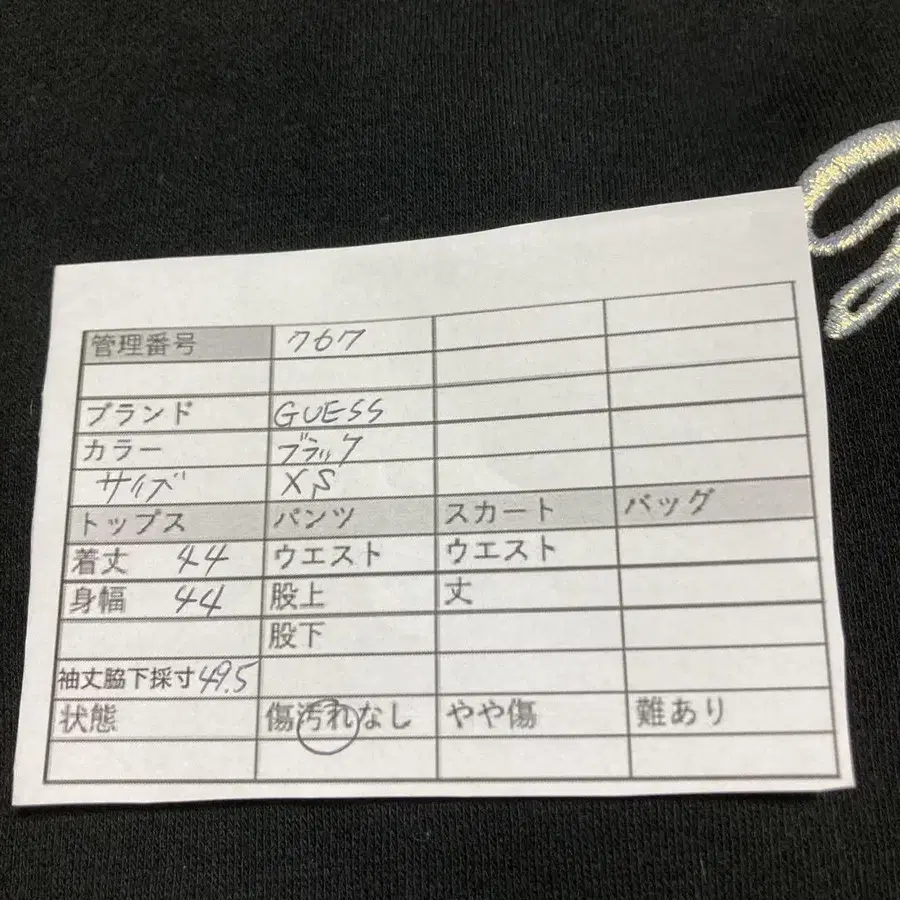 管理番号 767
ブランド GUESS
カラー ブラック
サイズ XS
トップス パンツ スカート バッグ
着丈 44 ウエスト ウエスト
身幅 44 股上 丈
股下
袖丈脇下採寸 49.5
状態 傷汚れなし やや傷 難あり